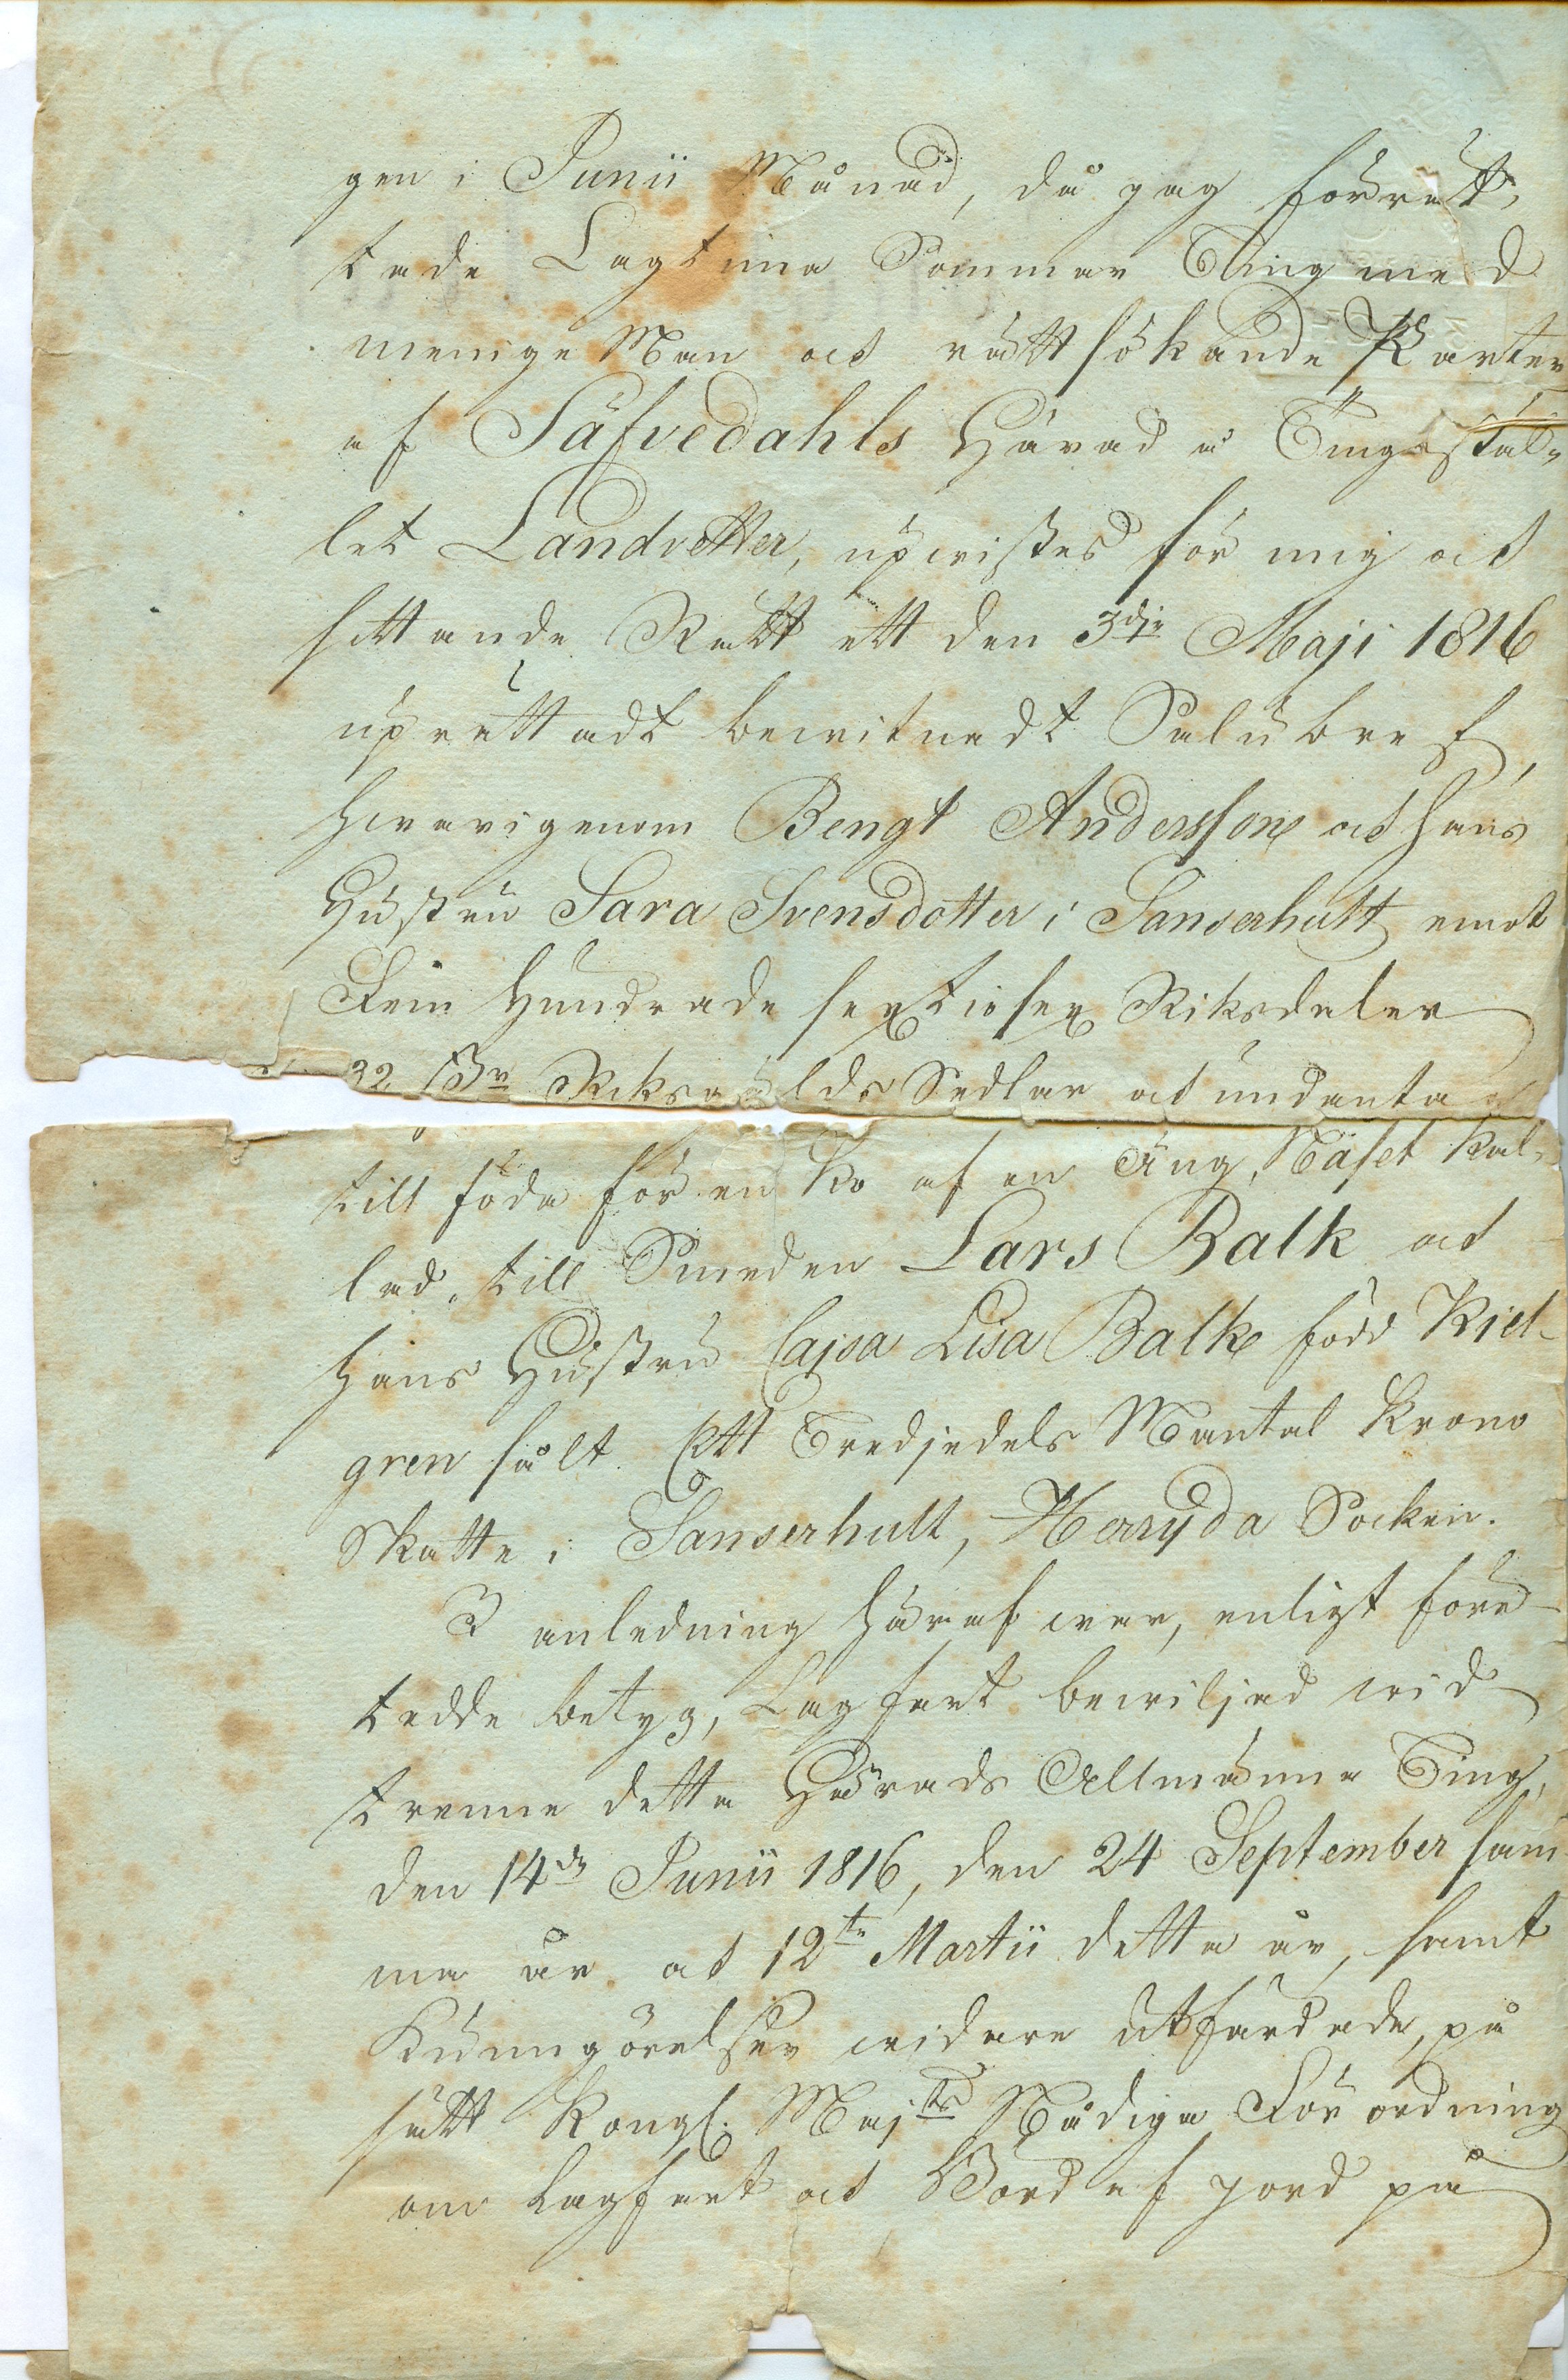 gen i Junii Månad, då jag förrät-
tade Lagtima Sommar Ting med
menige Man och rättsökande Parter
af Säfvedahls Härad å Tingsstäl-
let Landvetter, upwistes för mig och
sittande Rätt ett den 3dje Maji 1816
uprättadt bewitnadt Salubref,
hwarigenom Bengt Andersson och hans
Hustru Sara Svensdotter i Sanserhult emot
Fem Hundrade sextiosex Riksdaler
32 ßr Riksgälds Sedlar och undantag
till föda för en ko af en Äng, Näset kal-
lad, till Smeden Lars Balk och
hans Hustru Cajsa Lisa Balk född Kiel-
gren sålt Ett Tredjedels Mantal Krono
Skatte i Sanserhult, Herryda Socken.
I anledning häraf war, enligt före-
tedde betyg, Lagfart bewiljad wid
trenne detta Härads Allmänna Ting,
den 14de Junii 1816, den 24 September sam-
ma år och 12te Martii detta år, samt
Kungörelser widare utfärdade, på
sätt Kongl. Majts Nådiga Förordning
om Lagfart och Börd af jord på